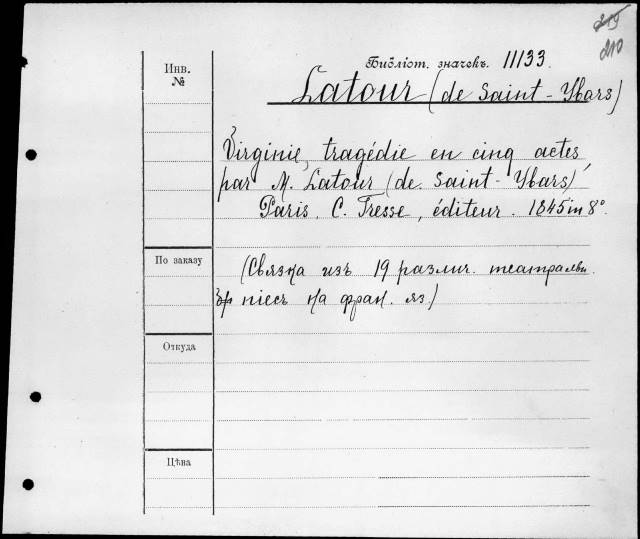 219
210
Инв.
№
Библіот. значекъ. 11133.
Latour (de Saint-Ybars)
Virginie, tragédie en cinq actes,
par M. Latour (de Saint-Ybars)
Paris. C. Tresse, éditeur. 1845 in 8°.
По заказу
(Связка изъ 19 различ. театральн.
піесъ на фран. яз.)
Откуда
Цѣна